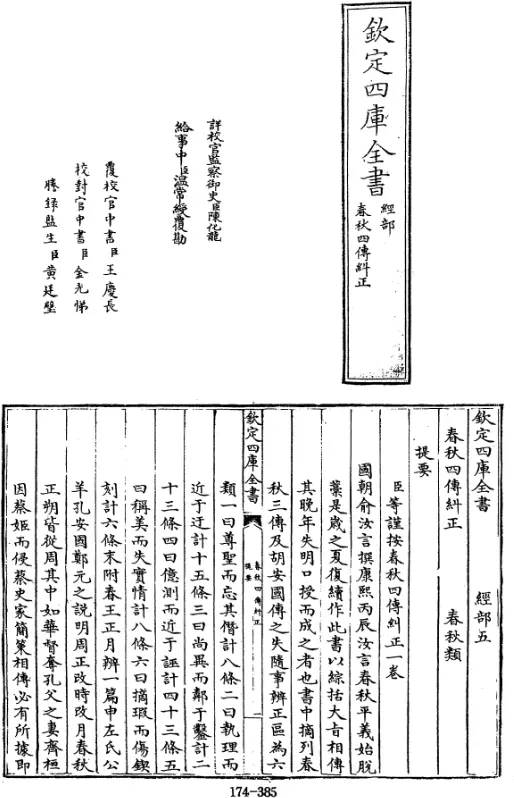 欽定四庫全書
經部
春秋四傳糾正
詳校官監察御史臣陳化龍
給事中臣温常綬覆勘
覆校官中書臣王慶長
校對官中書臣金光悌
謄錄監生臣黃廷壁
欽定四庫全書 經部五
春秋四傳糾正 春秋類
提要
臣等謹按春秋四傳糾正一卷
國朝俞汝言撰康熙丙辰汝言春秋平義始脫
藁是歲之夏復續作此書以綜括大旨相傳
其晚年失明口授而成之者也書中摘列春
秋三傳及胡安國傳之失隨事辨正區為六
欽定四庫全書
春秋四傳糾正
提要
一
類一曰尊聖而忘其僭計八條二曰執理而
近于迂計十五條三曰尚異而鄰于鑿計二
十三條四曰億測而近于誣計四十三條五
曰稱美而失實情計八條六曰摘瑕而傷鍥
刻計六條末附春王正月辨一篇申左氏公
羊孔安國鄭元之說明周正改時改月春秋
正朔皆從周其中如華督奪孔父之妻齊桓
因蔡姬而侵蔡史家簡策相傳必有所據即
174-385